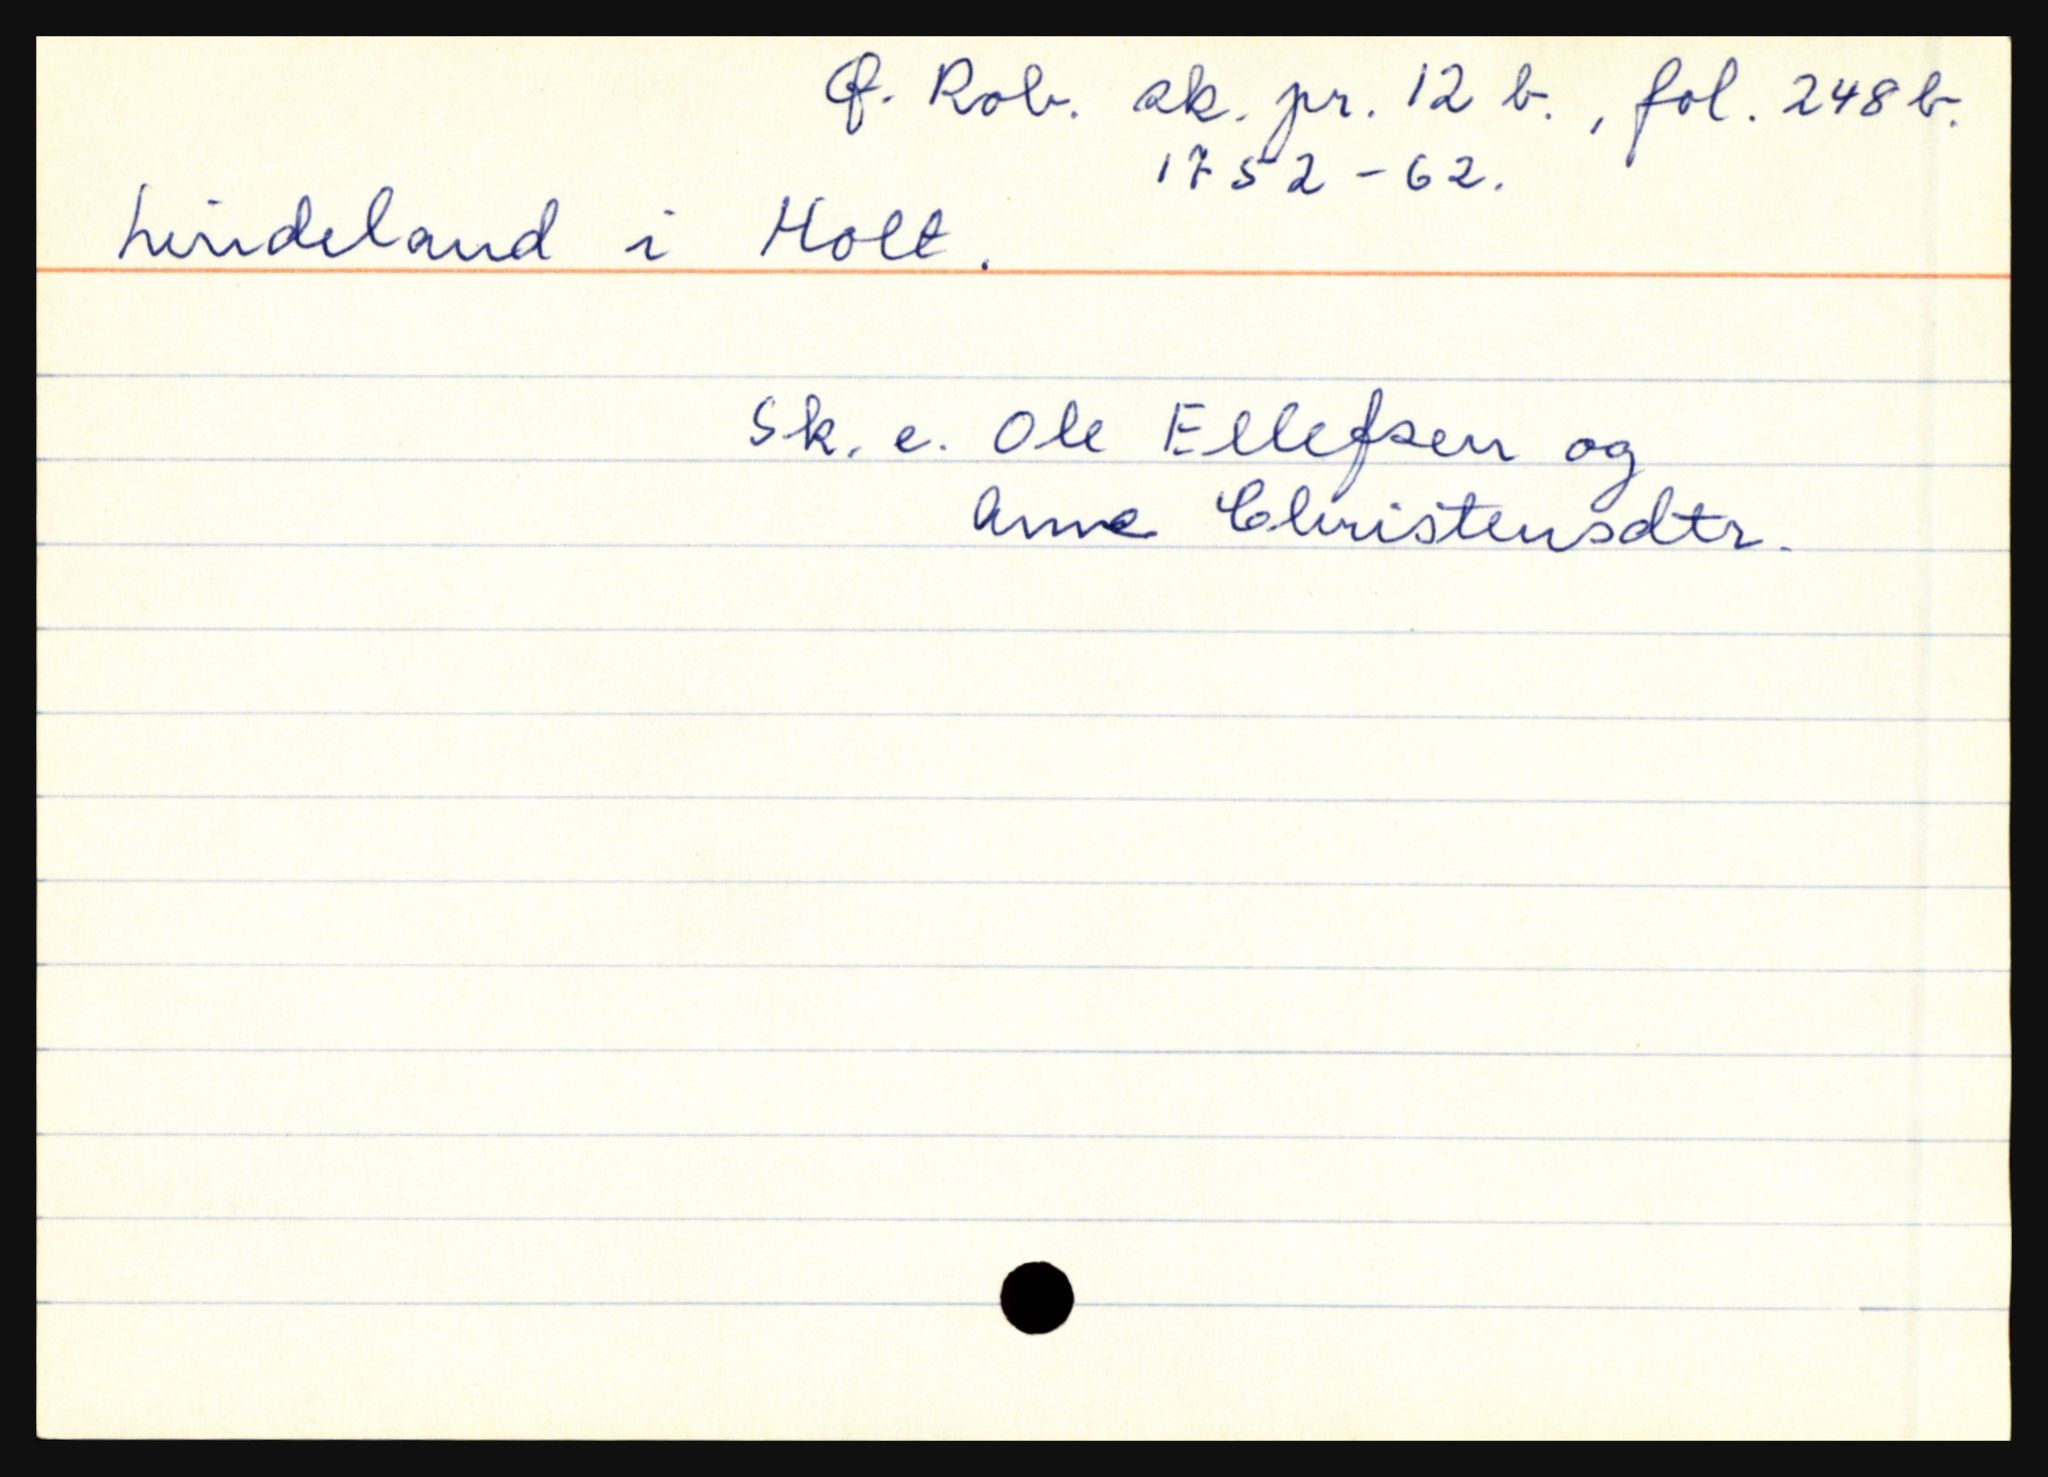 Ø. Rob. sk. pr. 12 b., fol. 248 b.
1752-62.
Lindeland i Holt.
Sk. e. Ole Ellefsen og
Anne Christensdtr.